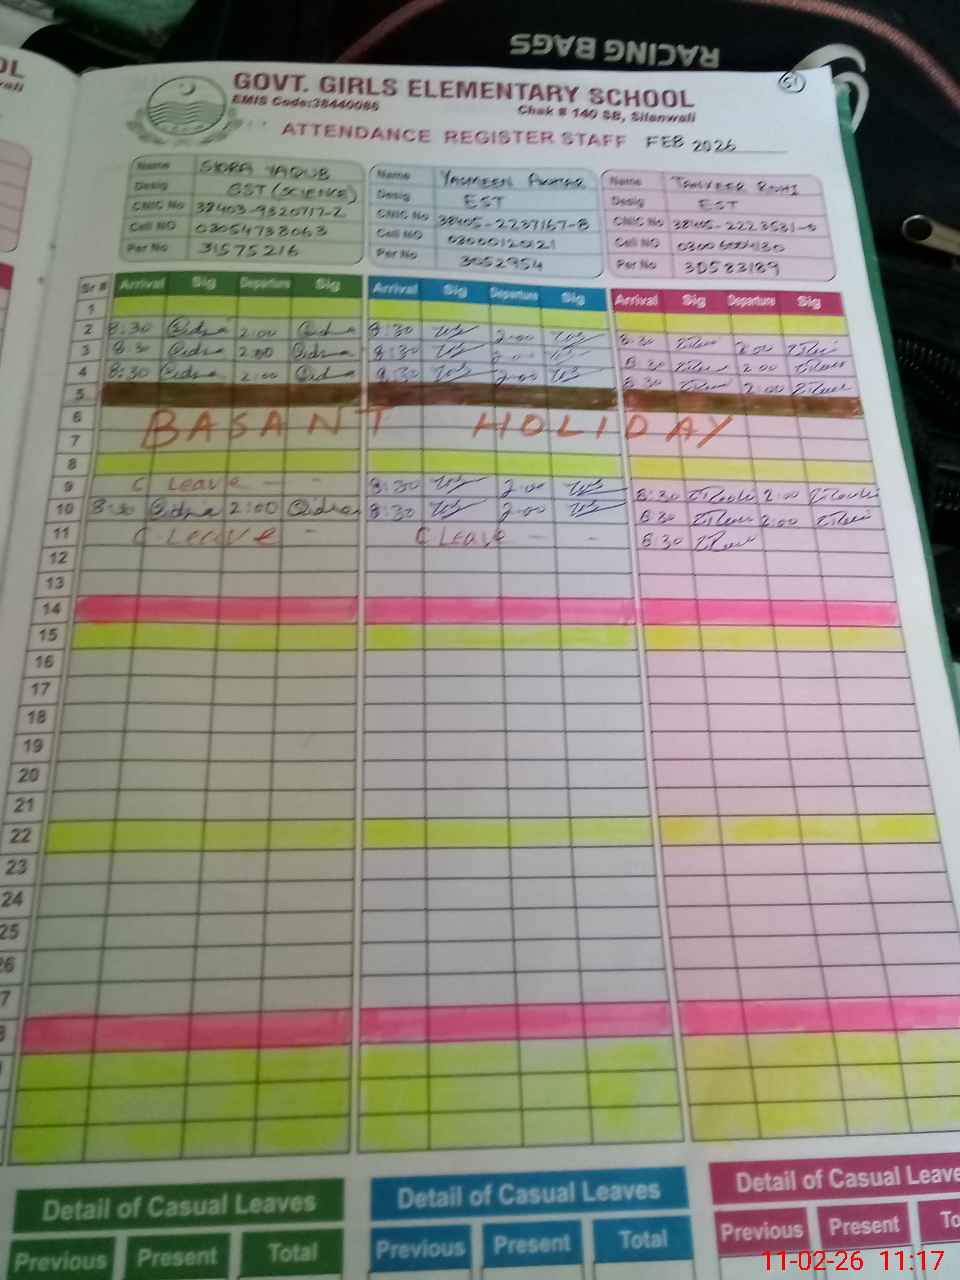 RACING BAGS
GOVT. GIRLS ELEMENTARY SCHOOL
EMIS Code:38440086 Chak # 140 SB, Silanwali
ATTENDANCE REGISTER STAFF FEB 2026
Name SIDRA YAQUB Name YASMEEN AKHTAR Name TANVEER RUHI
Desig GST (SCIENCE) Desig EST Desig EST
CNIC No 38403-9320717-2 CNIC No 38405-2237167-8 CNIC No
Cell NO 03054738063 Cell NO 03000120121 Cell NO
Per No 31575216 Per No 3052954 Per No 30583189
Sr # Arrival Sig Departure Sig Arrival Sig Departure Sig Arrival Sig Departure Sig
1
2 8:30 Sidra 2:00 Sidra 8:30 2:00 8:30 2:00
3 8:30 Sidra 2:00 Sidra 8:30 2:00 8:30 2:00
4 8:30 Sidra 2:00 Sidra 8:30 2:00 8:30 2:00
5
6 BASANT HOLIDAY
7
8
9 C Leave - - 8:30 2:00 8:30 2:00
10 8:30 Sidra 2:00 Sidra 8:30 2:00 8:30 2:00
11 C.Leave - C.Leave - - 8:30
12
13
14
15
16
17
18
19
20
21
22
23
24
25
26
7
Detail of Casual Leaves Detail of Casual Leaves Detail of Casual Leaves
Previous Present Total Previous Present Total Previous Present To
11-02-26 11:17